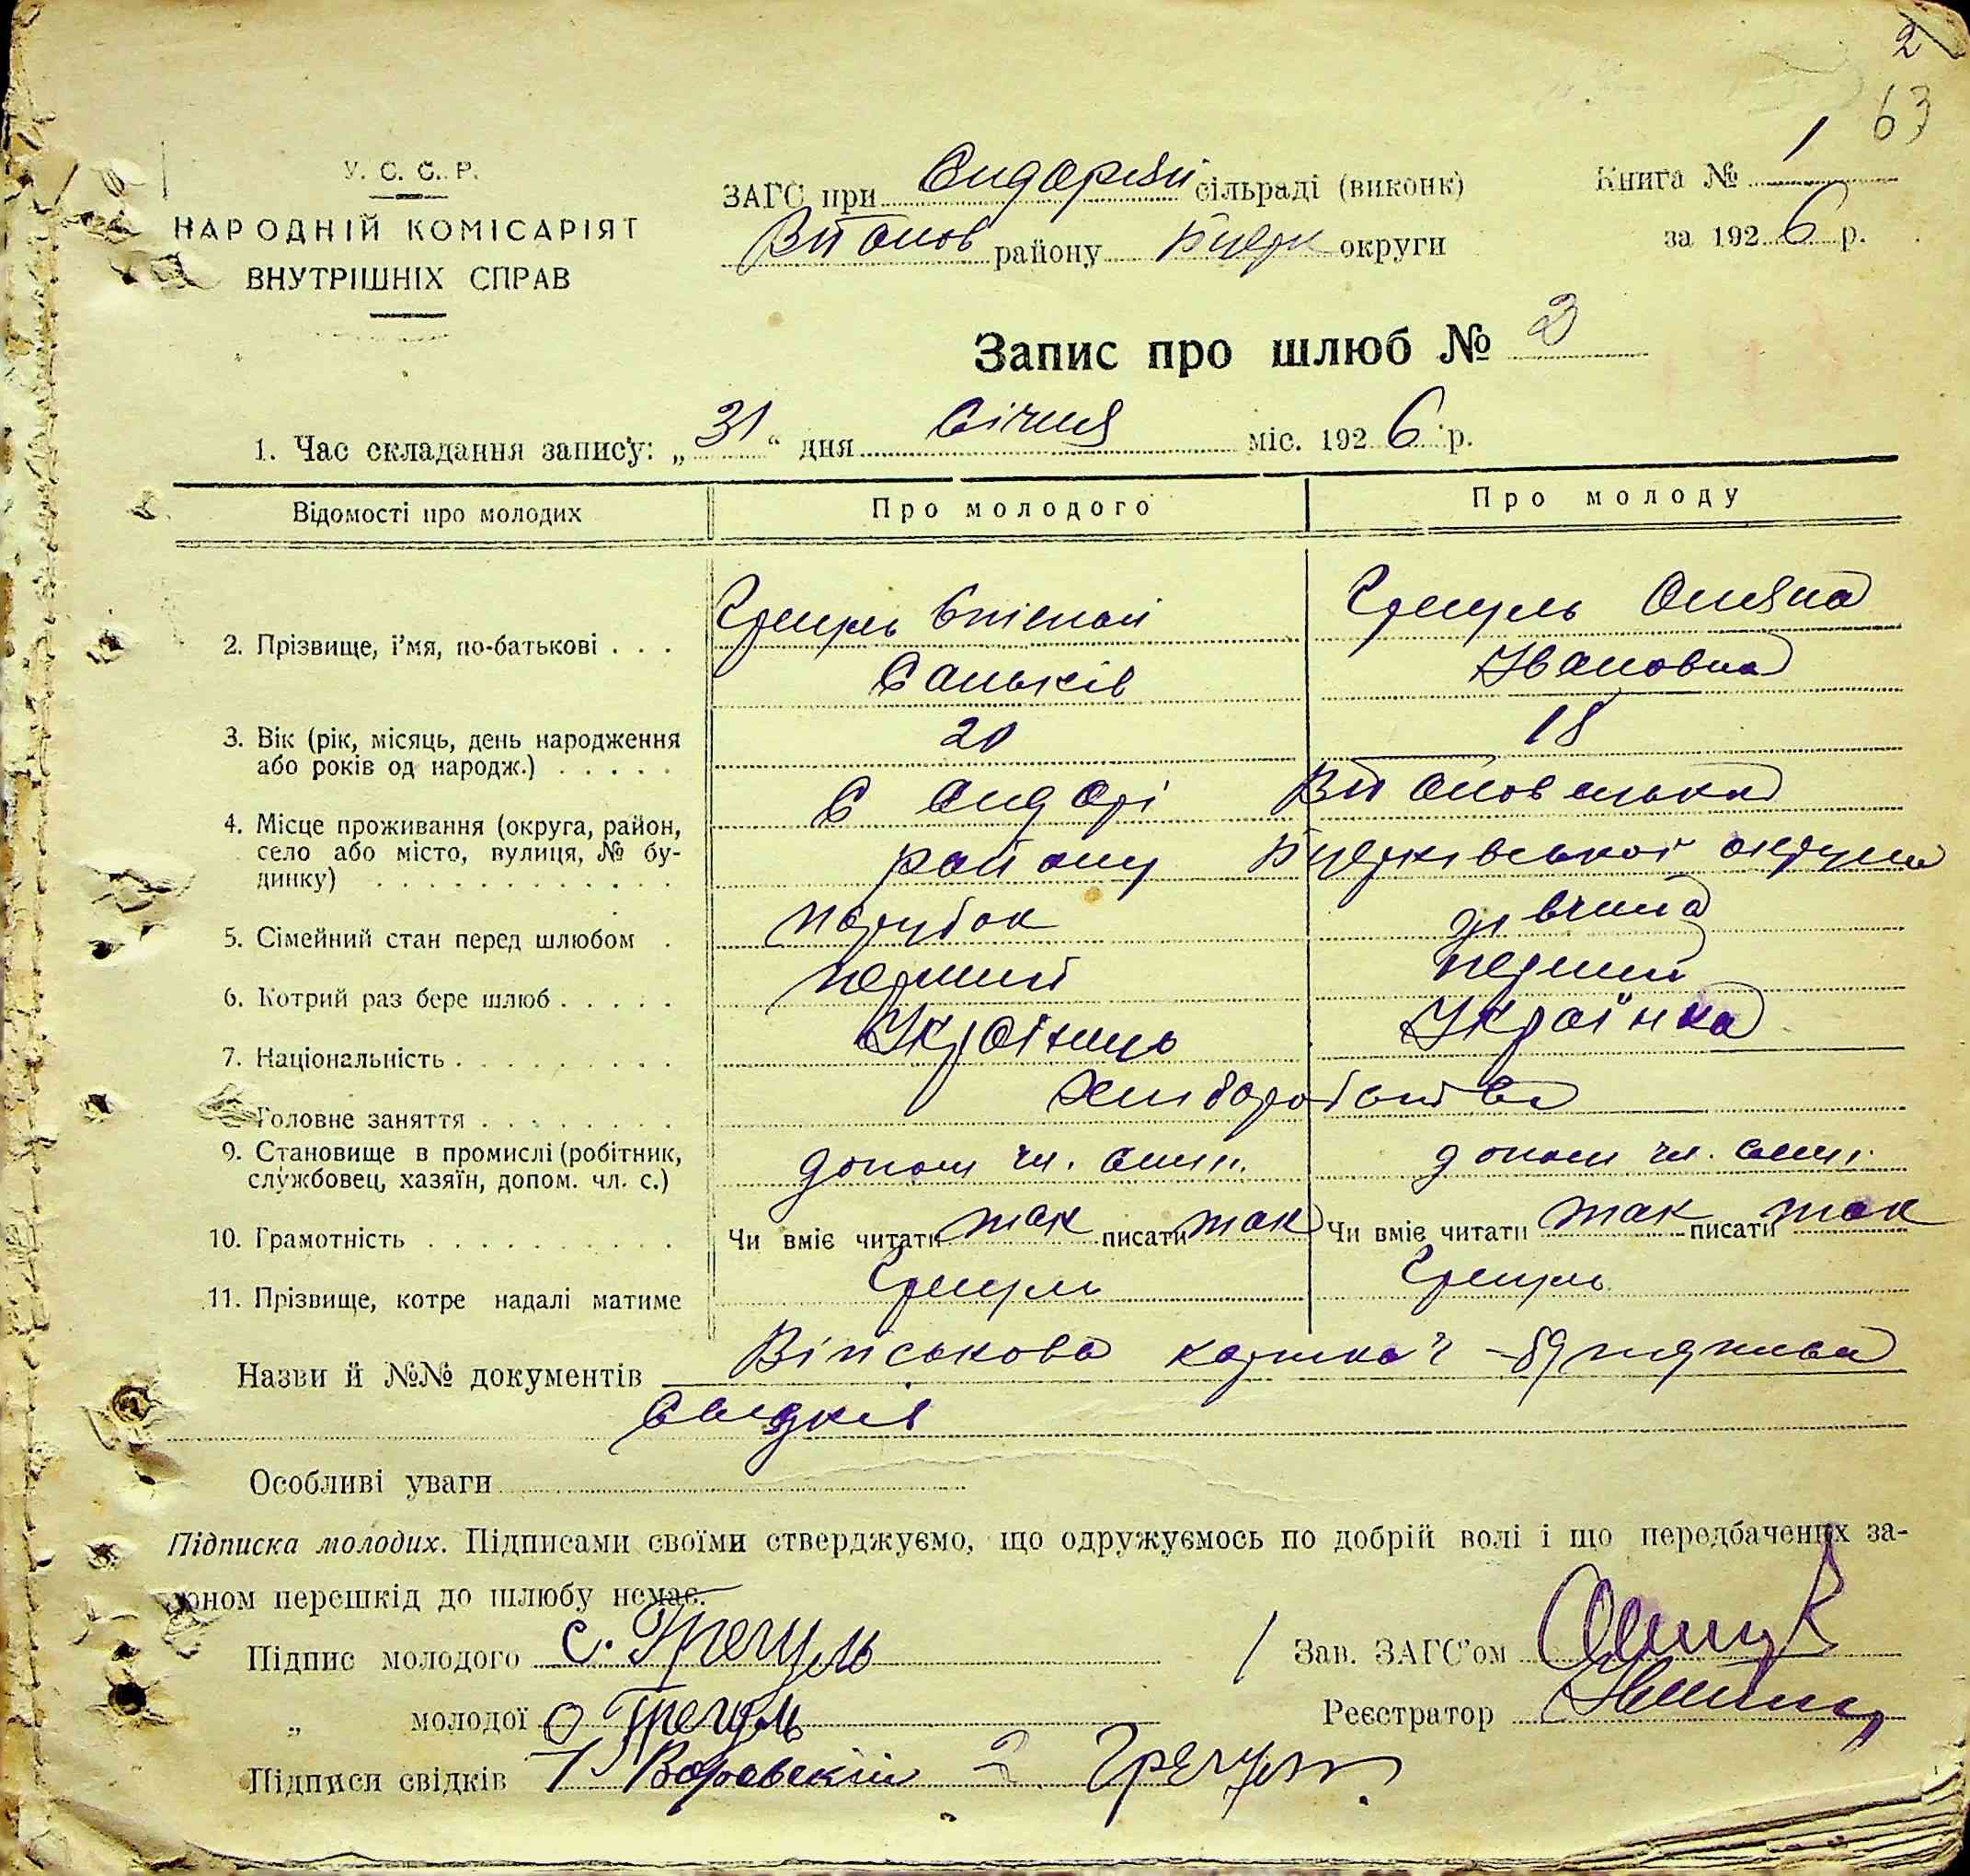 2
63
У. С. С. Р.
НАРОДНІЙ КОМІСАРІЯТ
ВНУТРІШНІХ СПРАВ
ЗАГС при сільраді (виконк)
району округи
Книга № 1
за 1926 р.
Запис про шлюб № 2
1. Час складання запису: „31“ дня Січня міс. 1926 р.
Відомості про молодих Про молодого Про молоду
2. Прізвище, і'мя, по-батькові . . . Грецуль Грецуль Омеяна
Ивановна
3. Вік (рік, місяць, день народження 20 18
або років од народж.) . . . . .
4. Місце проживання (округа, район,
село або місто, вулиця, № бу-
динку) . . . . . . . . . . . . району округи
5. Сімейний стан перед шлюбом . парубок дівчина
6. Котрий раз бере шлюб . . . . . перший перший
7. Національність . . . . . . . . . Українець Українка
Головне заняття . . . . . . . . Хлиборобство
9. Становище в промислі (робітник, допом чл. сими. допом чл. сими.
службовец, хазяїн, допом. чл. с.)
10. Грамотність . . . . . . . . . . Чи вміє читати так писати так Чи вміє читати так писати так
11. Прізвище, котре надалі матиме Грецуль Грецуль
Назви й №№ документів Військова
Свидків
Особливі уваги
Підписка молодих. Підписами своїми стверджуємо, що одружуємось по добрій волі і що передбачених за-
коном перешкід до шлюбу немає.
Підпис молодого С. Грецуль
Зав. ЗАГС'ом
„ молодої О Грецуль
Реєстратор
Підписи свідків 1 2